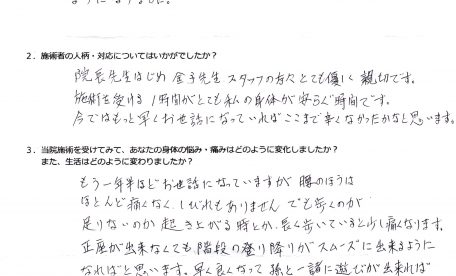 ようになりました。
2．施術者の人柄・対応についてはいかがでしたか？
院長先生はじめ 金子先生 スタッフの方々とても優しく 親切です。
施術を受ける 1時間がとても私の身体が安らぐ時間です。
今ではもっと早くお世話になっていればここまで辛くなかったかなと思います。
3．当院施術を受けてみて、あなたの身体の悩み・痛みはどのように変化しましたか？
また、生活はどのように変わりましたか？
もう一年半ほどお世話になっていますが 腰のほうは
ほとんど痛くなく、しびれもありません でも歩くのが
足りないのか 起き上がる時とか、長く歩いていると少し痛くなります。
正座が出来なくても 階段の登り降りがスムーズに出来るように
なればと思います。早く良くなって 孫と一緒に遊びが出来れば